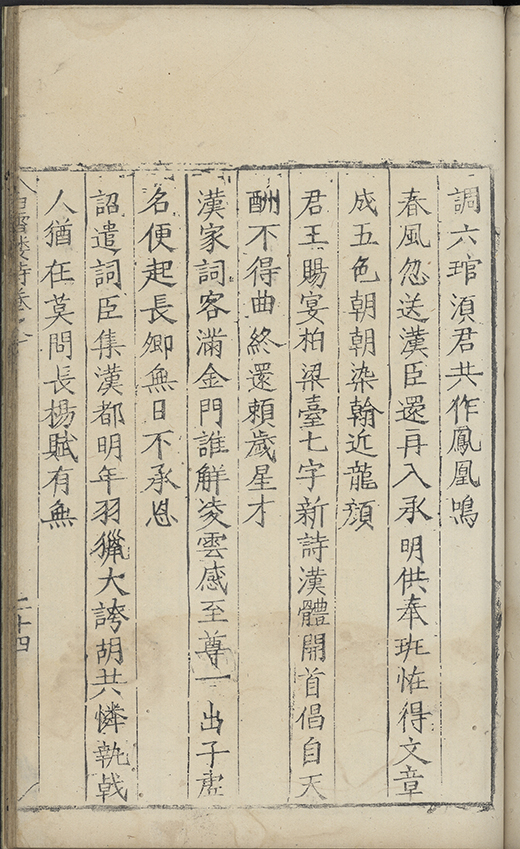 調六琯湏君共作鳳凰鳴
春風忽送漢臣還再入承明供奉班恠得文章
成五色朝朝染翰近龍顔
君王賜宴柏梁臺七字新詩漢體開首倡自天
酬不得曲終還賴歲星才
漢家詞客滿金門誰觧凌雲感至尊一出子虛
名便起長卿無日不承恩
詔遣詞臣集漢都明年羽獵大誇胡共憐執戟
人猶在莫問長楊賦有無
白雪樓詩卷之
二十四